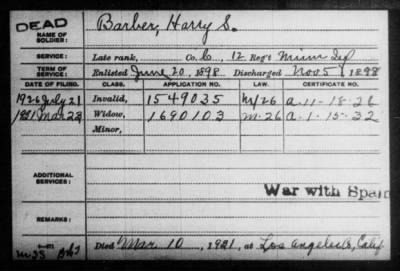 DEAD
NAME OF SOLDIER: Barber, Harry S.
SERVICE: Late rank, Co. C, 12 Reg't Minn Inf
TERM OF SERVICE: Enlisted June 20, 1898 Discharged Nov 5, 1898
DATE OF FILING. CLASS. APPLICATION NO. LAW. CERTIFICATE NO.
1926 July 21 Invalid, 1549035 A-11-18-26
1931 Mar 28 Widow, 1690103 M-26 A-1-15-32
Minor,
ADDITIONAL SERVICES:
War with Spain
REMARKS:
Died Mar 10, 1931, at Los Angeles, Calif